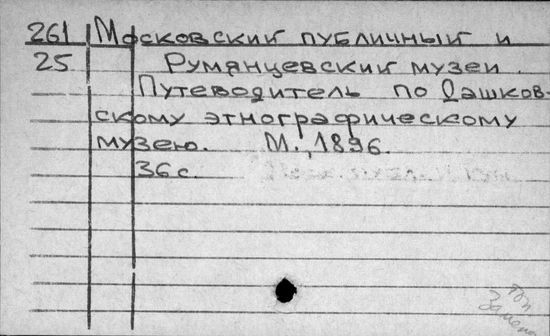 261 Московский публичный и
25 Румянцевский музеи.
Путеводитель по Дашков-
скому этнографическому
музею. М., 1896.
36 с.